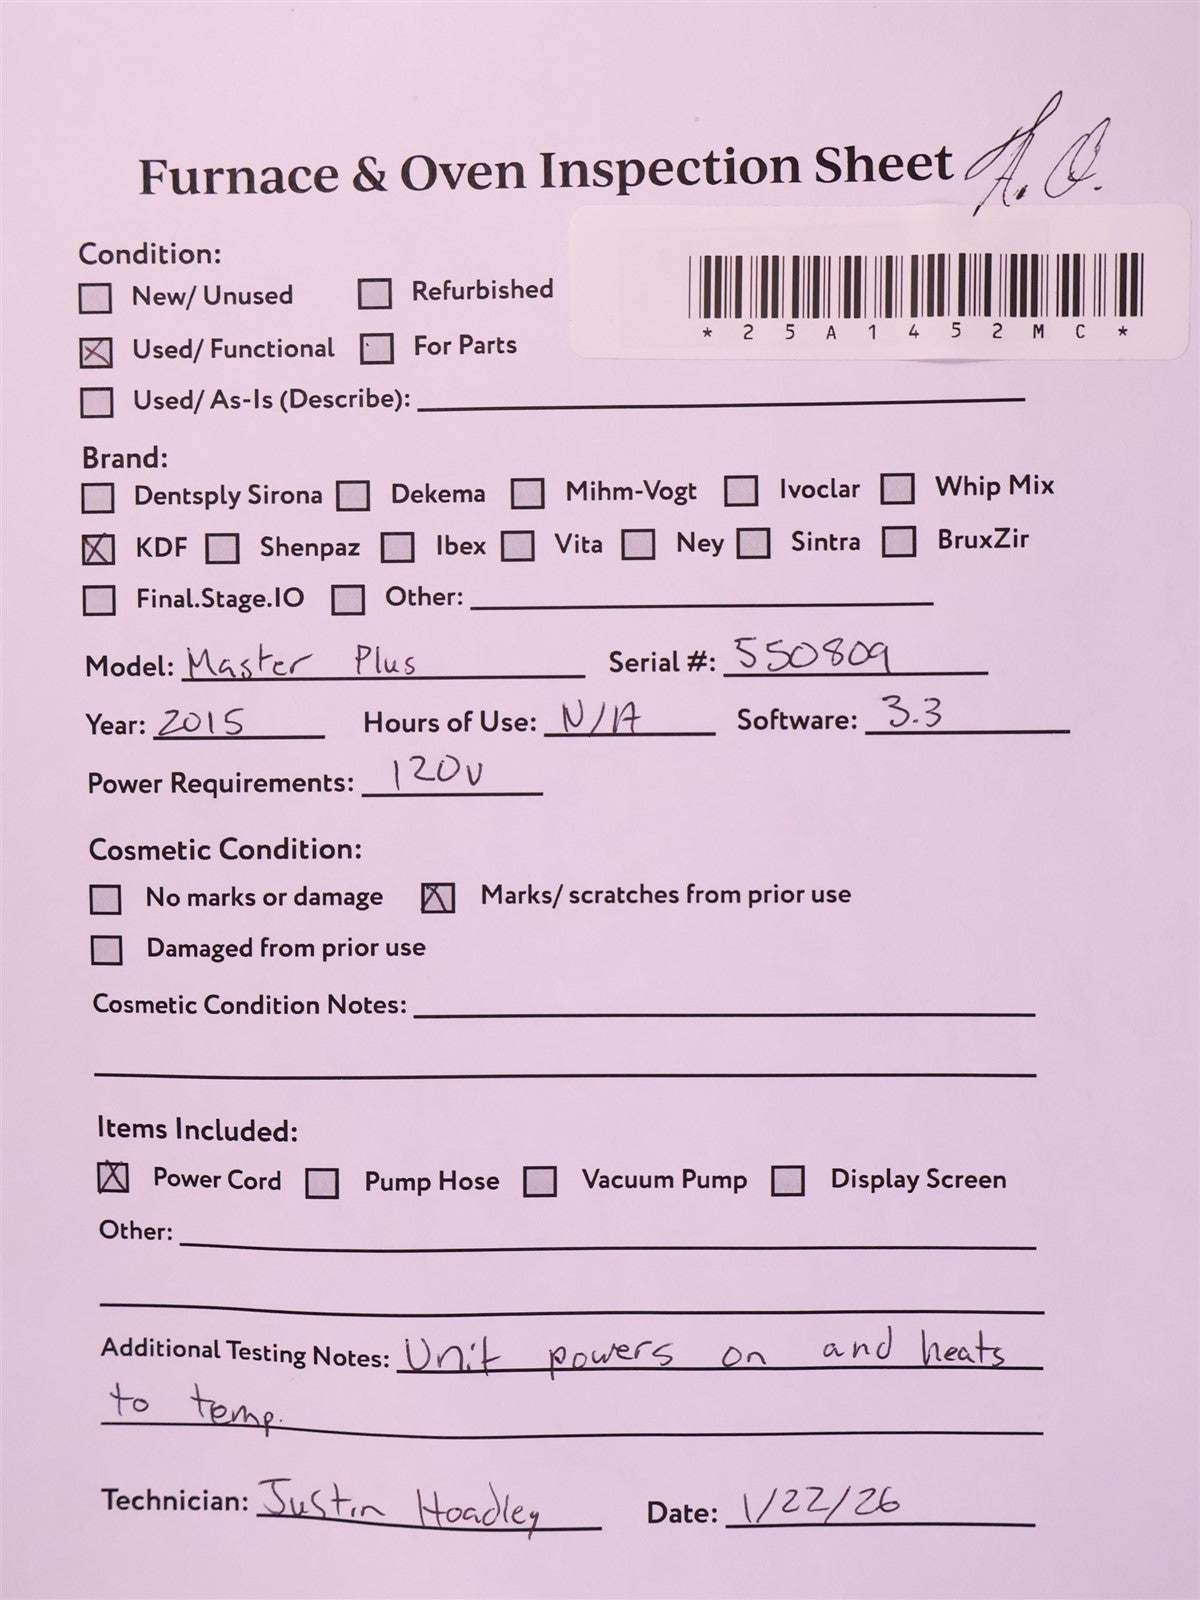 Furnace & Oven Inspection Sheet
Condition:
New/ Unused Refurbished
*25A1452MC*
Used/ Functional For Parts
Used/ As-Is (Describe):
Brand:
Dentsply Sirona Dekema Mihm-Vogt Ivoclar Whip Mix
KDF Shenpaz Ibex Vita Ney Sintra BruxZir
Final.Stage.IO Other:
Model: Master Plus Serial #: 550809
Year: 2015 Hours of Use: N/A Software: 3.3
Power Requirements: 120v
Cosmetic Condition:
No marks or damage Marks/ scratches from prior use
Damaged from prior use
Cosmetic Condition Notes:
Items Included:
Power Cord Pump Hose Vacuum Pump Display Screen
Other:
Additional Testing Notes: Unit powers on and heats
to temp.
Technician: Justin Hoadley Date: 1/22/26